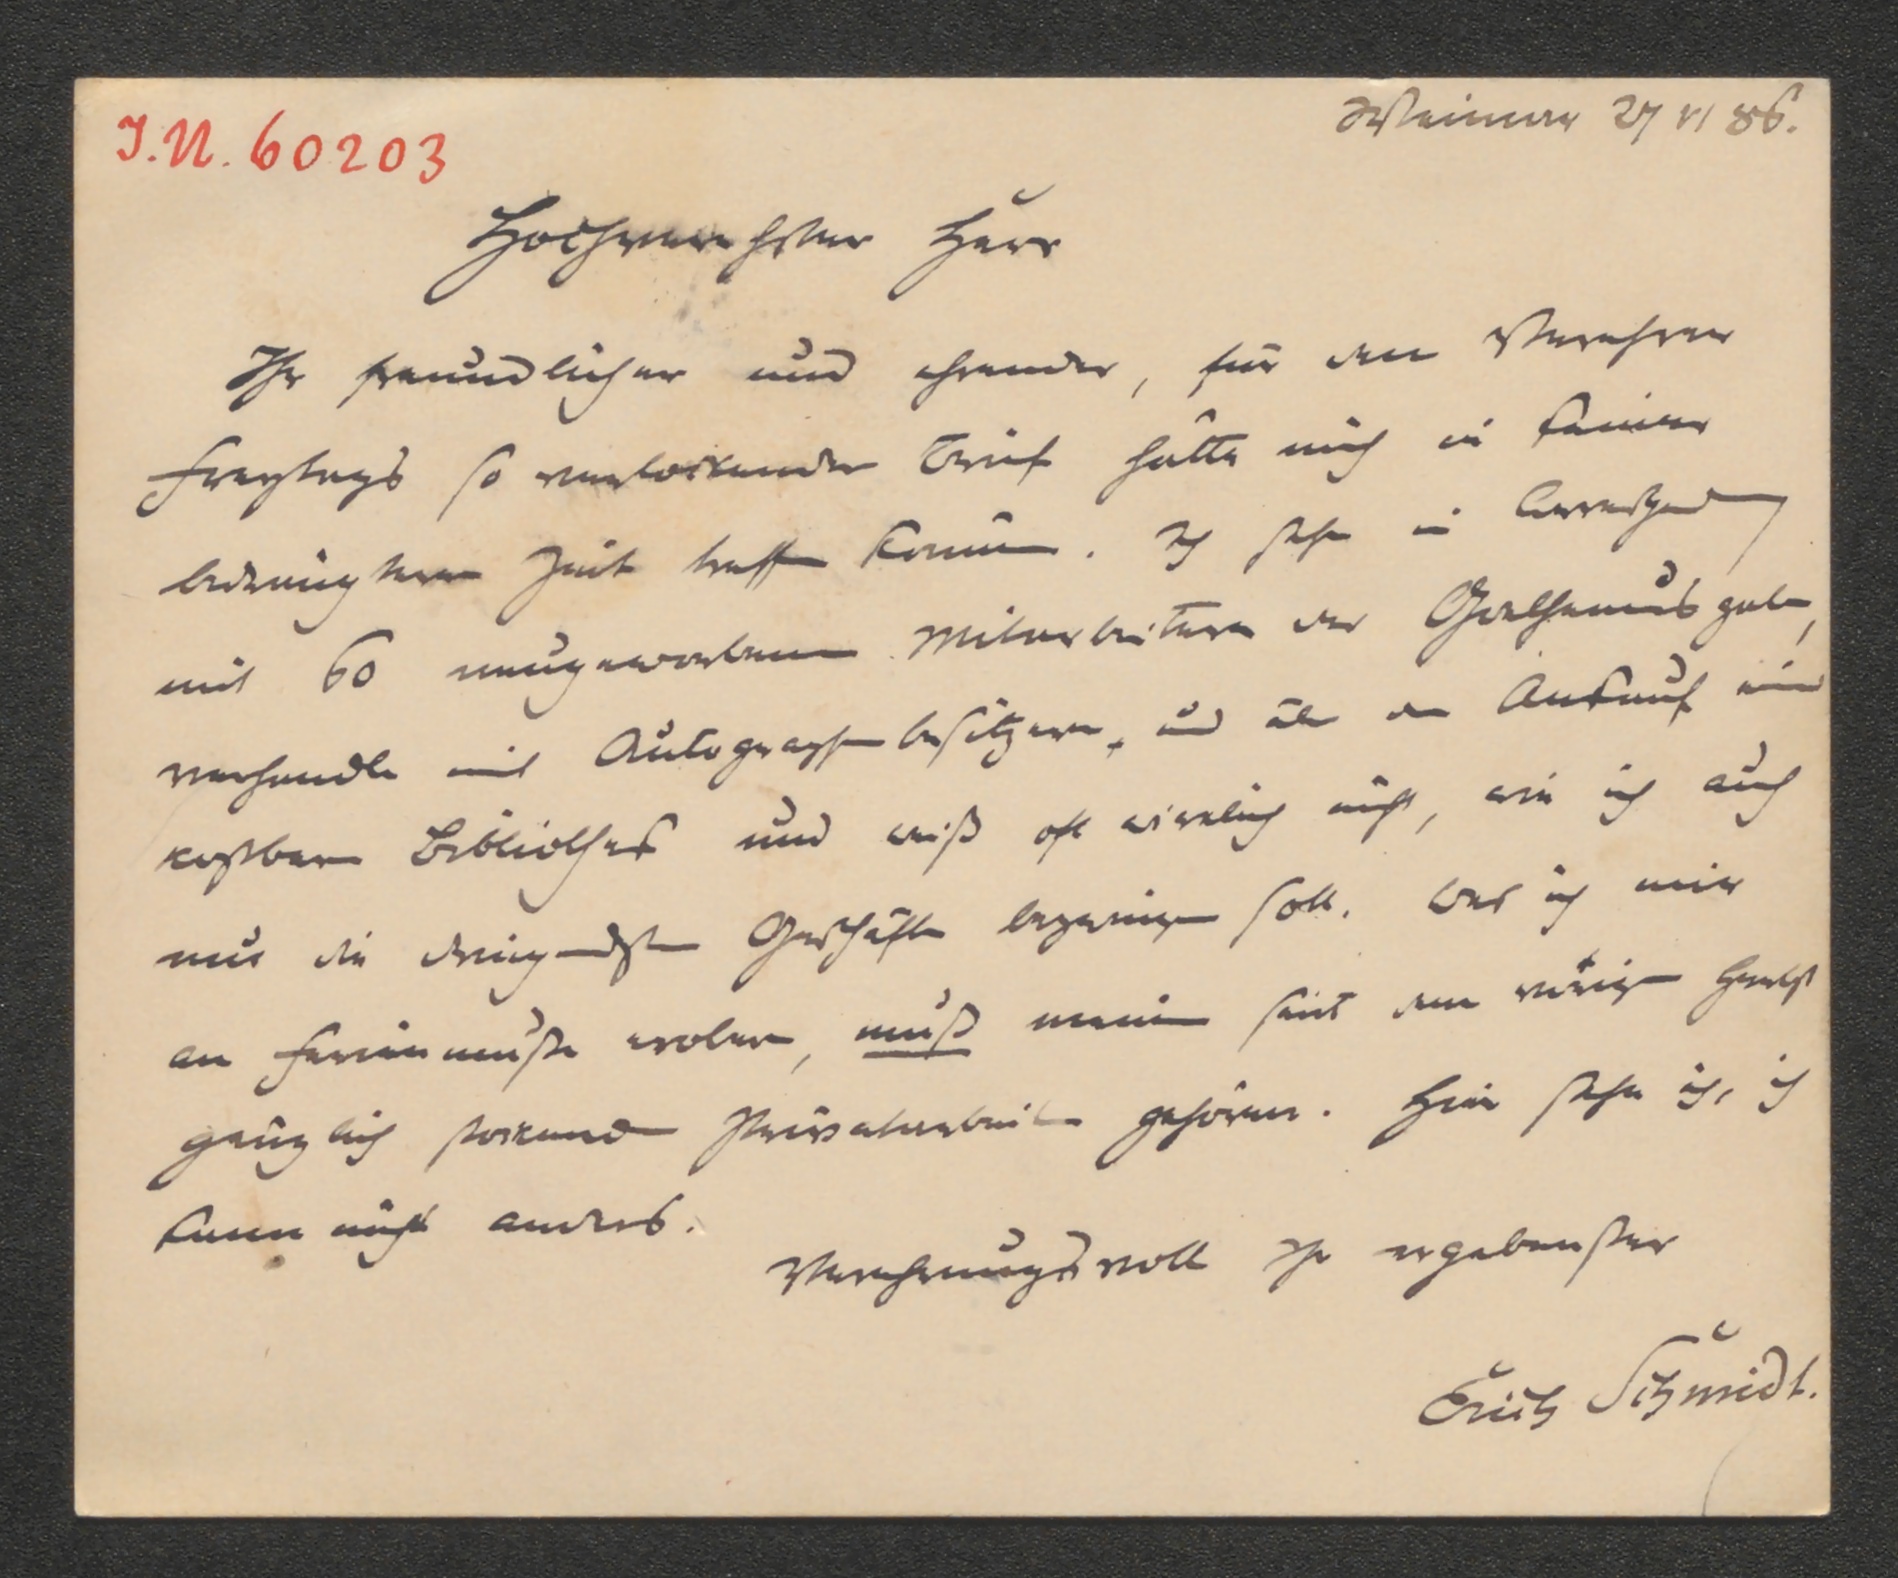 I.N. 60203
Weimar 27 VI 86.
Hochverehrter Herr
Ihr freundlicher und ehrender, für den Verehrer
Freytags so verlockender Brief hätte mich in keiner
bedrängteren Zeit treffen können. Ich stehe in Correspond
mit 60 neugeworbenen Mitarbeitern der Goetheausgabe,
verhandle mit Autographenbesitzern, und über den Ankauf einer
kostbaren Bibliothek und weiß oft wirklich nicht, wie ich auch
nur die dringendsten Geschäfte bezwingen soll. Was ich mir
an Ferienmuße erobere, muß meinen seit dem vorigen Herbst
gänzlich stockenden Privatarbeiten gehören. Hier stehe ich, ich
kann nicht anders.
Verehrungsvoll Ihr ergebenster
Erich Schmidt.